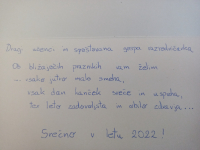 Dragi učenci in spoštovana gospa razredničarka,
Ob bližajočih praznikih vam želim
– vsako jutro malo smeha,
vsak dan kanček sreče in uspeha,
vse leto zadovoljstva in obilo zdravja...
Srečno v letu 2022!